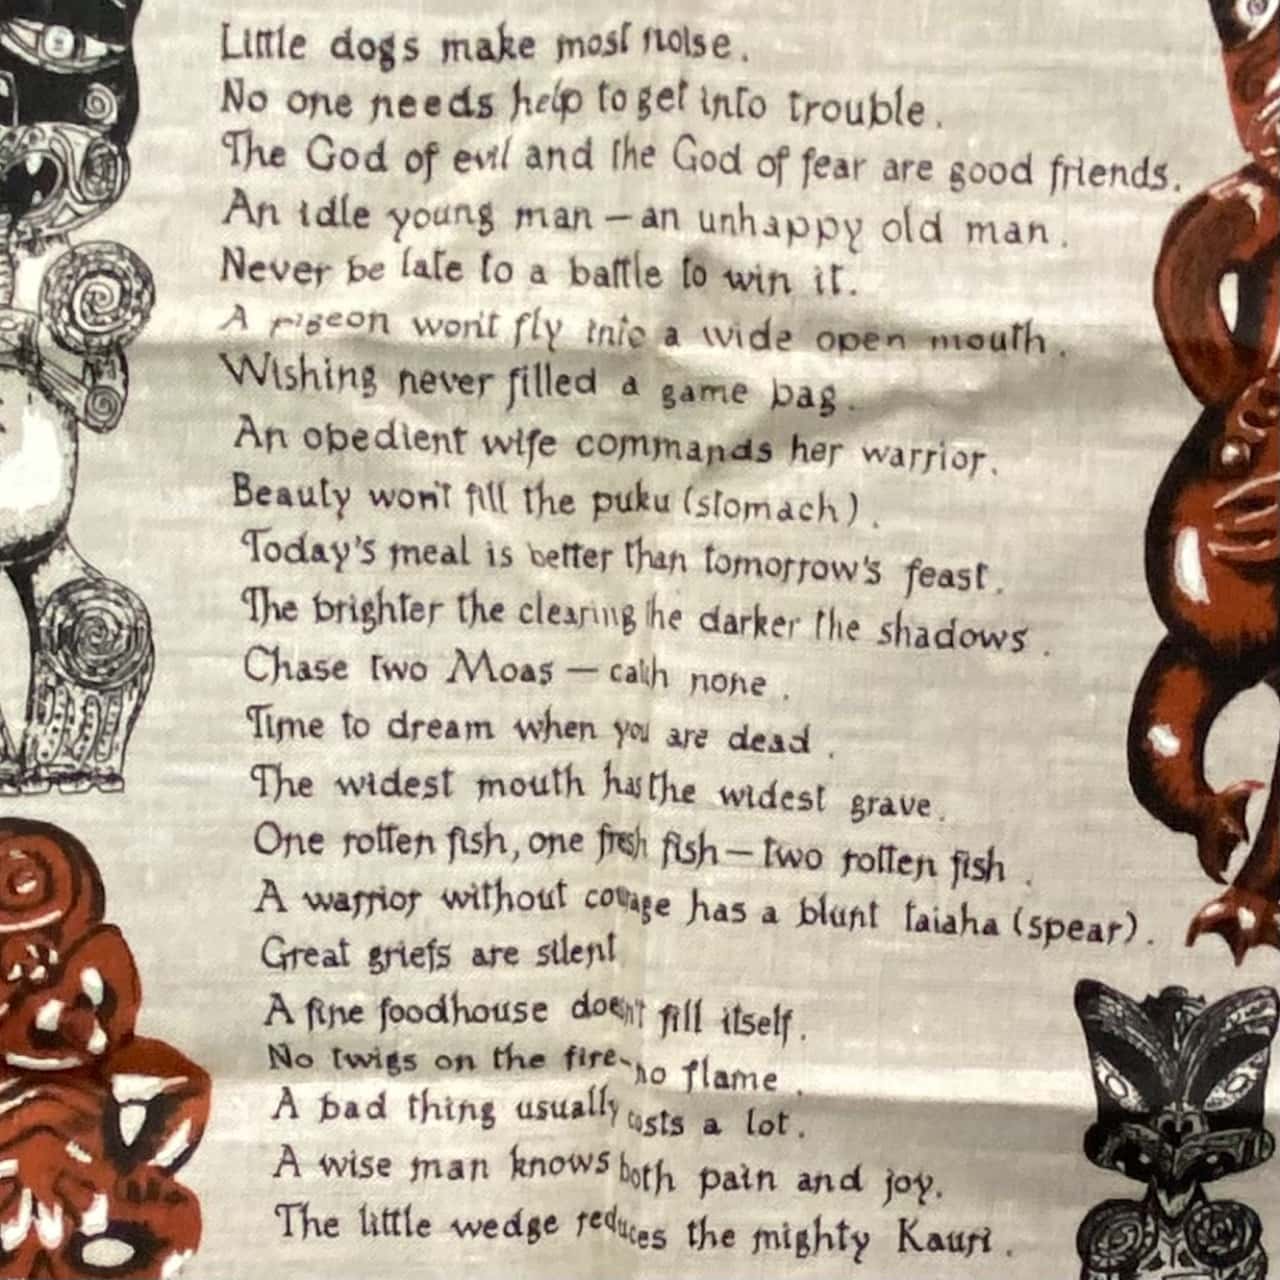 Little dogs make most noise.
No one needs help to get into trouble.
The God of evil and the God of fear are good friends.
An idle young man – an unhappy old man.
Never be late to a battle to win it.
A pigeon won't fly into a wide open mouth.
Wishing never filled a game bag.
An obedient wife commands her warrior.
Beauty won't fill the puku (stomach).
Today's meal is better than tomorrow's feast.
The brighter the clearing the darker the shadows.
Chase two Moas – catch none.
Time to dream when you are dead.
The widest mouth has the widest grave.
One rotten fish, one fresh fish – two rotten fish.
A warrior without courage has a blunt taiaha (spear).
Great griefs are silent
A fine foodhouse doesn't fill itself.
No twigs on the fire – no flame.
A bad thing usually costs a lot.
A wise man knows both pain and joy.
The little wedge reduces the mighty Kauri.